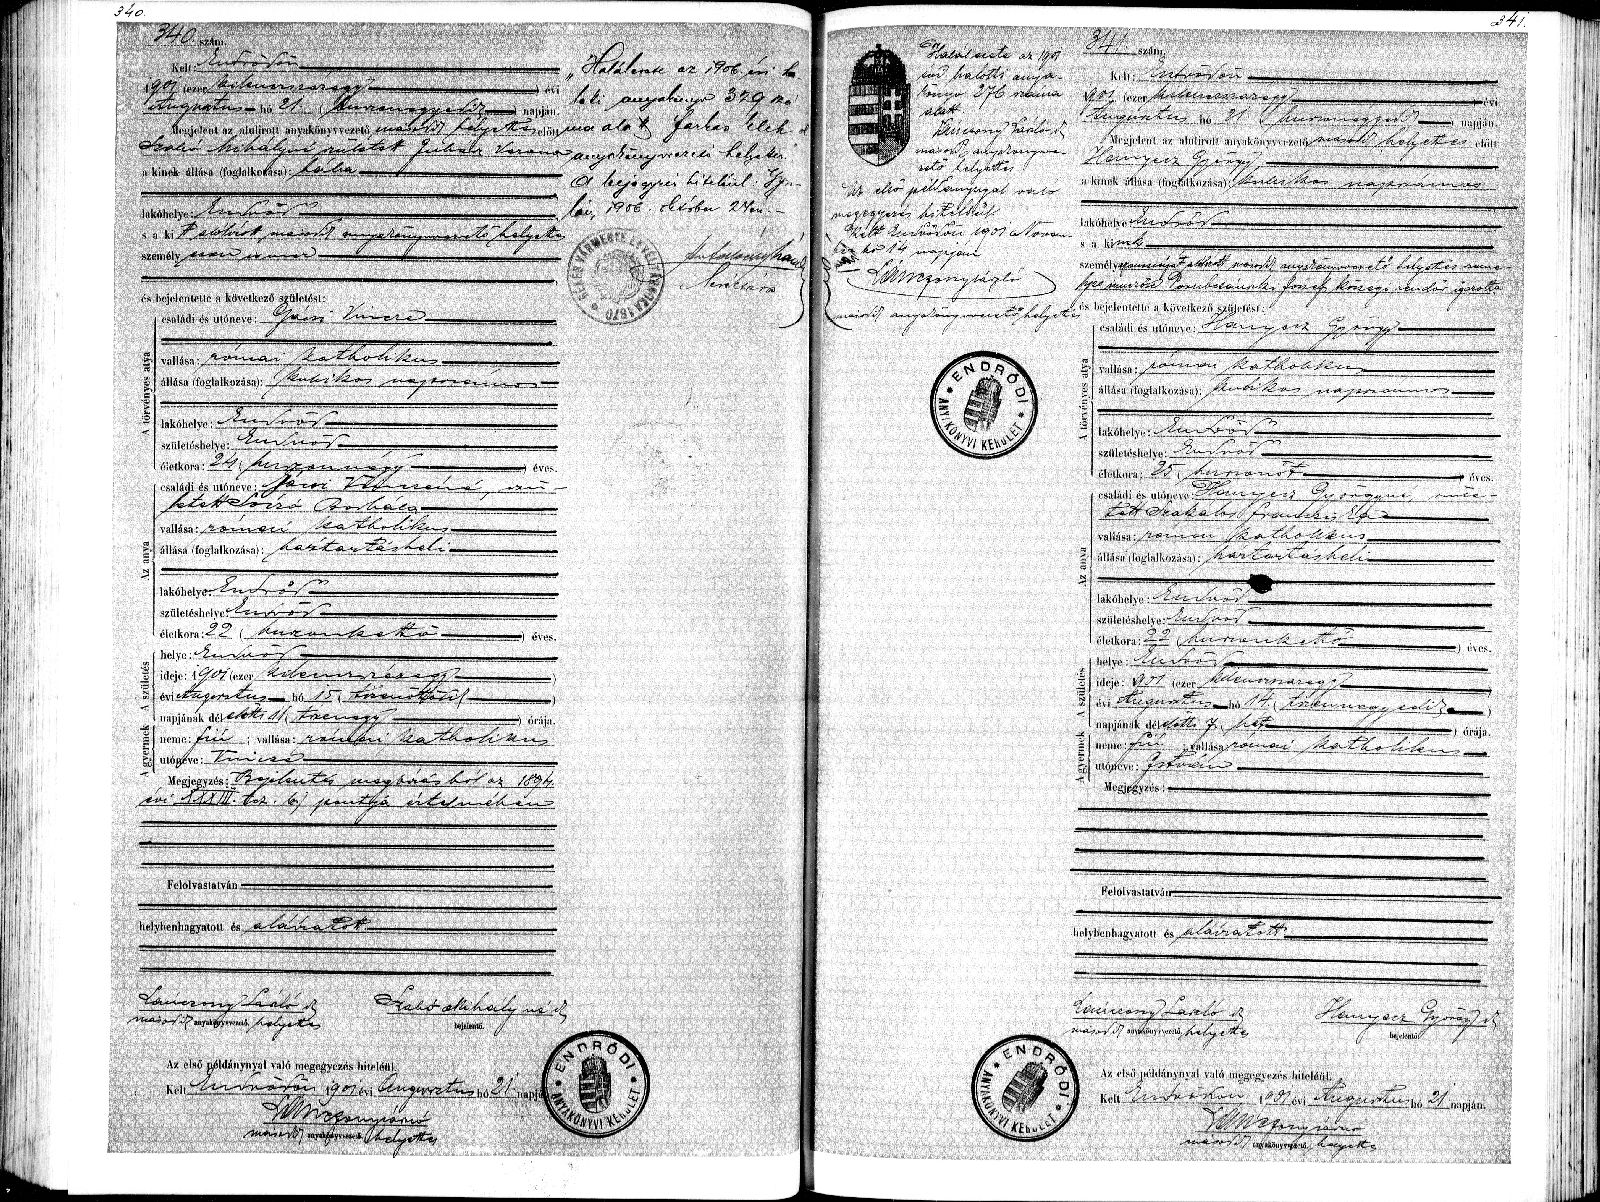 340.
340 szám.
Kelt: Endrődön
1901 (ezer kilencszázegy) évi
Augusztus hó 21 (huszonegyedik) napján.
Megjelent az alulirott anyakönyvvezető másod helyettes előtt
Szabó Mihályné született
a kinek állása (foglalkozása): bába
lakóhelye: Endrőd
s a ki t alulirott másod anyakönyvvezető helyettes
személy esen ismer
és bejelentette a következő születést:
A törvényes atya
családi és utóneve: Vincze
vallása: római katholikus
állása (foglalkozása): kubikos napszámos
lakóhelye: Endrőd
születéshelye: Endrőd
életkora: 24 (huszonnégy) éves.
Az anya
családi és utóneve: Vinczéné, szü-
letett Borbála
vallása: római katholikus
állása (foglalkozása): háztartásbeli
lakóhelye: Endrőd
születéshelye: Endrőd
életkora: 22 (huszonkettő) éves.
A gyermek A születés
helye: Endrőd
ideje: 1901 (ezer kilencszázegy)
évi Augusztus hó 15 (tizenötödik)
napjának dél előtti 11 (tizenegy) órája.
neme: fiú; vallása: római katholikus
utóneve: Vincze
Megjegyzés: Bejelentés megbízásból az 1894.
évi XXXIII. tcz. pontja értelmében
Felolvastatván
helybenhagyatott és aláiratott
László sk
másod anyakönyvvezető, helyettes
Szabó Mihályné sk
bejelentő.
Az első példánynyal való megegyezés hiteléül.
Kelt Endrődön 1901 évi Augusztus hó 21 napján
másod anyakönyvvezető. helyettes
ENDRŐDI
ANYAKÖNYVI KERÜLET
"Halálesete az 1906. évi ha-
lotti anyakönyv 329 szá-
ma alatt Farkas Elek
anyakönyvvezető helyettes"
A bejegyzés hiteléül Gyu-
lán, 1906. október 24én.
BÉKÉS VÁRMEGYE LEVÉLTÁRA 1870
341.
341 szám.
Kelt: Endrődön
1901 (ezer kilencszázegy) évi
Augusztus hó 21 (huszonegyedik) napján.
Megjelent az alulirott anyakönyvvezető másod helyettes előtt
Hanyecz György
a kinek állása (foglalkozása): kubikos napszámos
lakóhelye: Endrőd
s a kinek
személyazonosságát alulirott másod anyakönyvvezető helyettes
József községi rendőr igazolta
és bejelentette a következő születést:
A törvényes atya
családi és utóneve: Hanyecz György
vallása: római katholikus
állása (foglalkozása): kubikos napszámos
lakóhelye: Endrőd
születéshelye: Endrőd
életkora: 25 (huszonöt) éves.
Az anya
családi és utóneve: Hanyecz Györgyné, szüle-
tett Szakálos Franciska
vallása: római katholikus
állása (foglalkozása): háztartásbeli
lakóhelye: Endrőd
születéshelye: Endrőd
életkora: 22 (huszonkettő) éves.
A gyermek A születés
helye: Endrőd
ideje: 1901 (ezer kilencszázegy)
évi Augusztus hó 14 (tizennegyedik)
napjának dél előtti 7 (hét) órája.
neme: fiú; vallása: római katholikus
utóneve: István
Megjegyzés:
Felolvastatván
helybenhagyatott és aláiratott
László sk
másod anyakönyvvezető, helyettes
Hanyecz György sk
bejelentő.
Az első példánynyal való megegyezés hiteléül.
Kelt Endrődön 1901 évi Augusztus hó 21 napján.
másod anyakönyvvezető, helyettes
ENDRŐDI
ANYAKÖNYVI KERÜLET
Halálesete az 1901
évi halotti anya-
könyv 276 száma
alatt
László sk
másod anyakönyvve-
zető helyettes
Az első példánynyal való
megegyezés hiteléül
Kelt Endrődön 1901 Novem-
ber hó 14 napján
László
másod anyakönyvvezető helyettes
ENDRŐDI
ANYAKÖNYVI KERÜLET